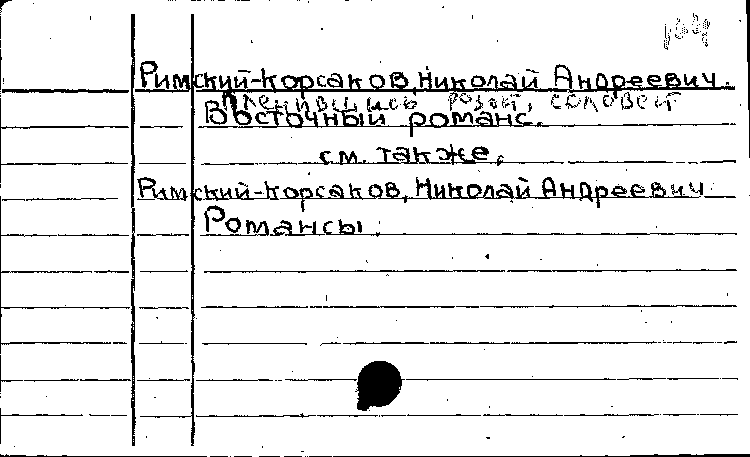 Римский-Корсаков, Николай Андреевич.
Пленившись розой, соловей
Восточный романс.
см. также,
Римский-Корсаков, Николай Андреевич
Романсы.